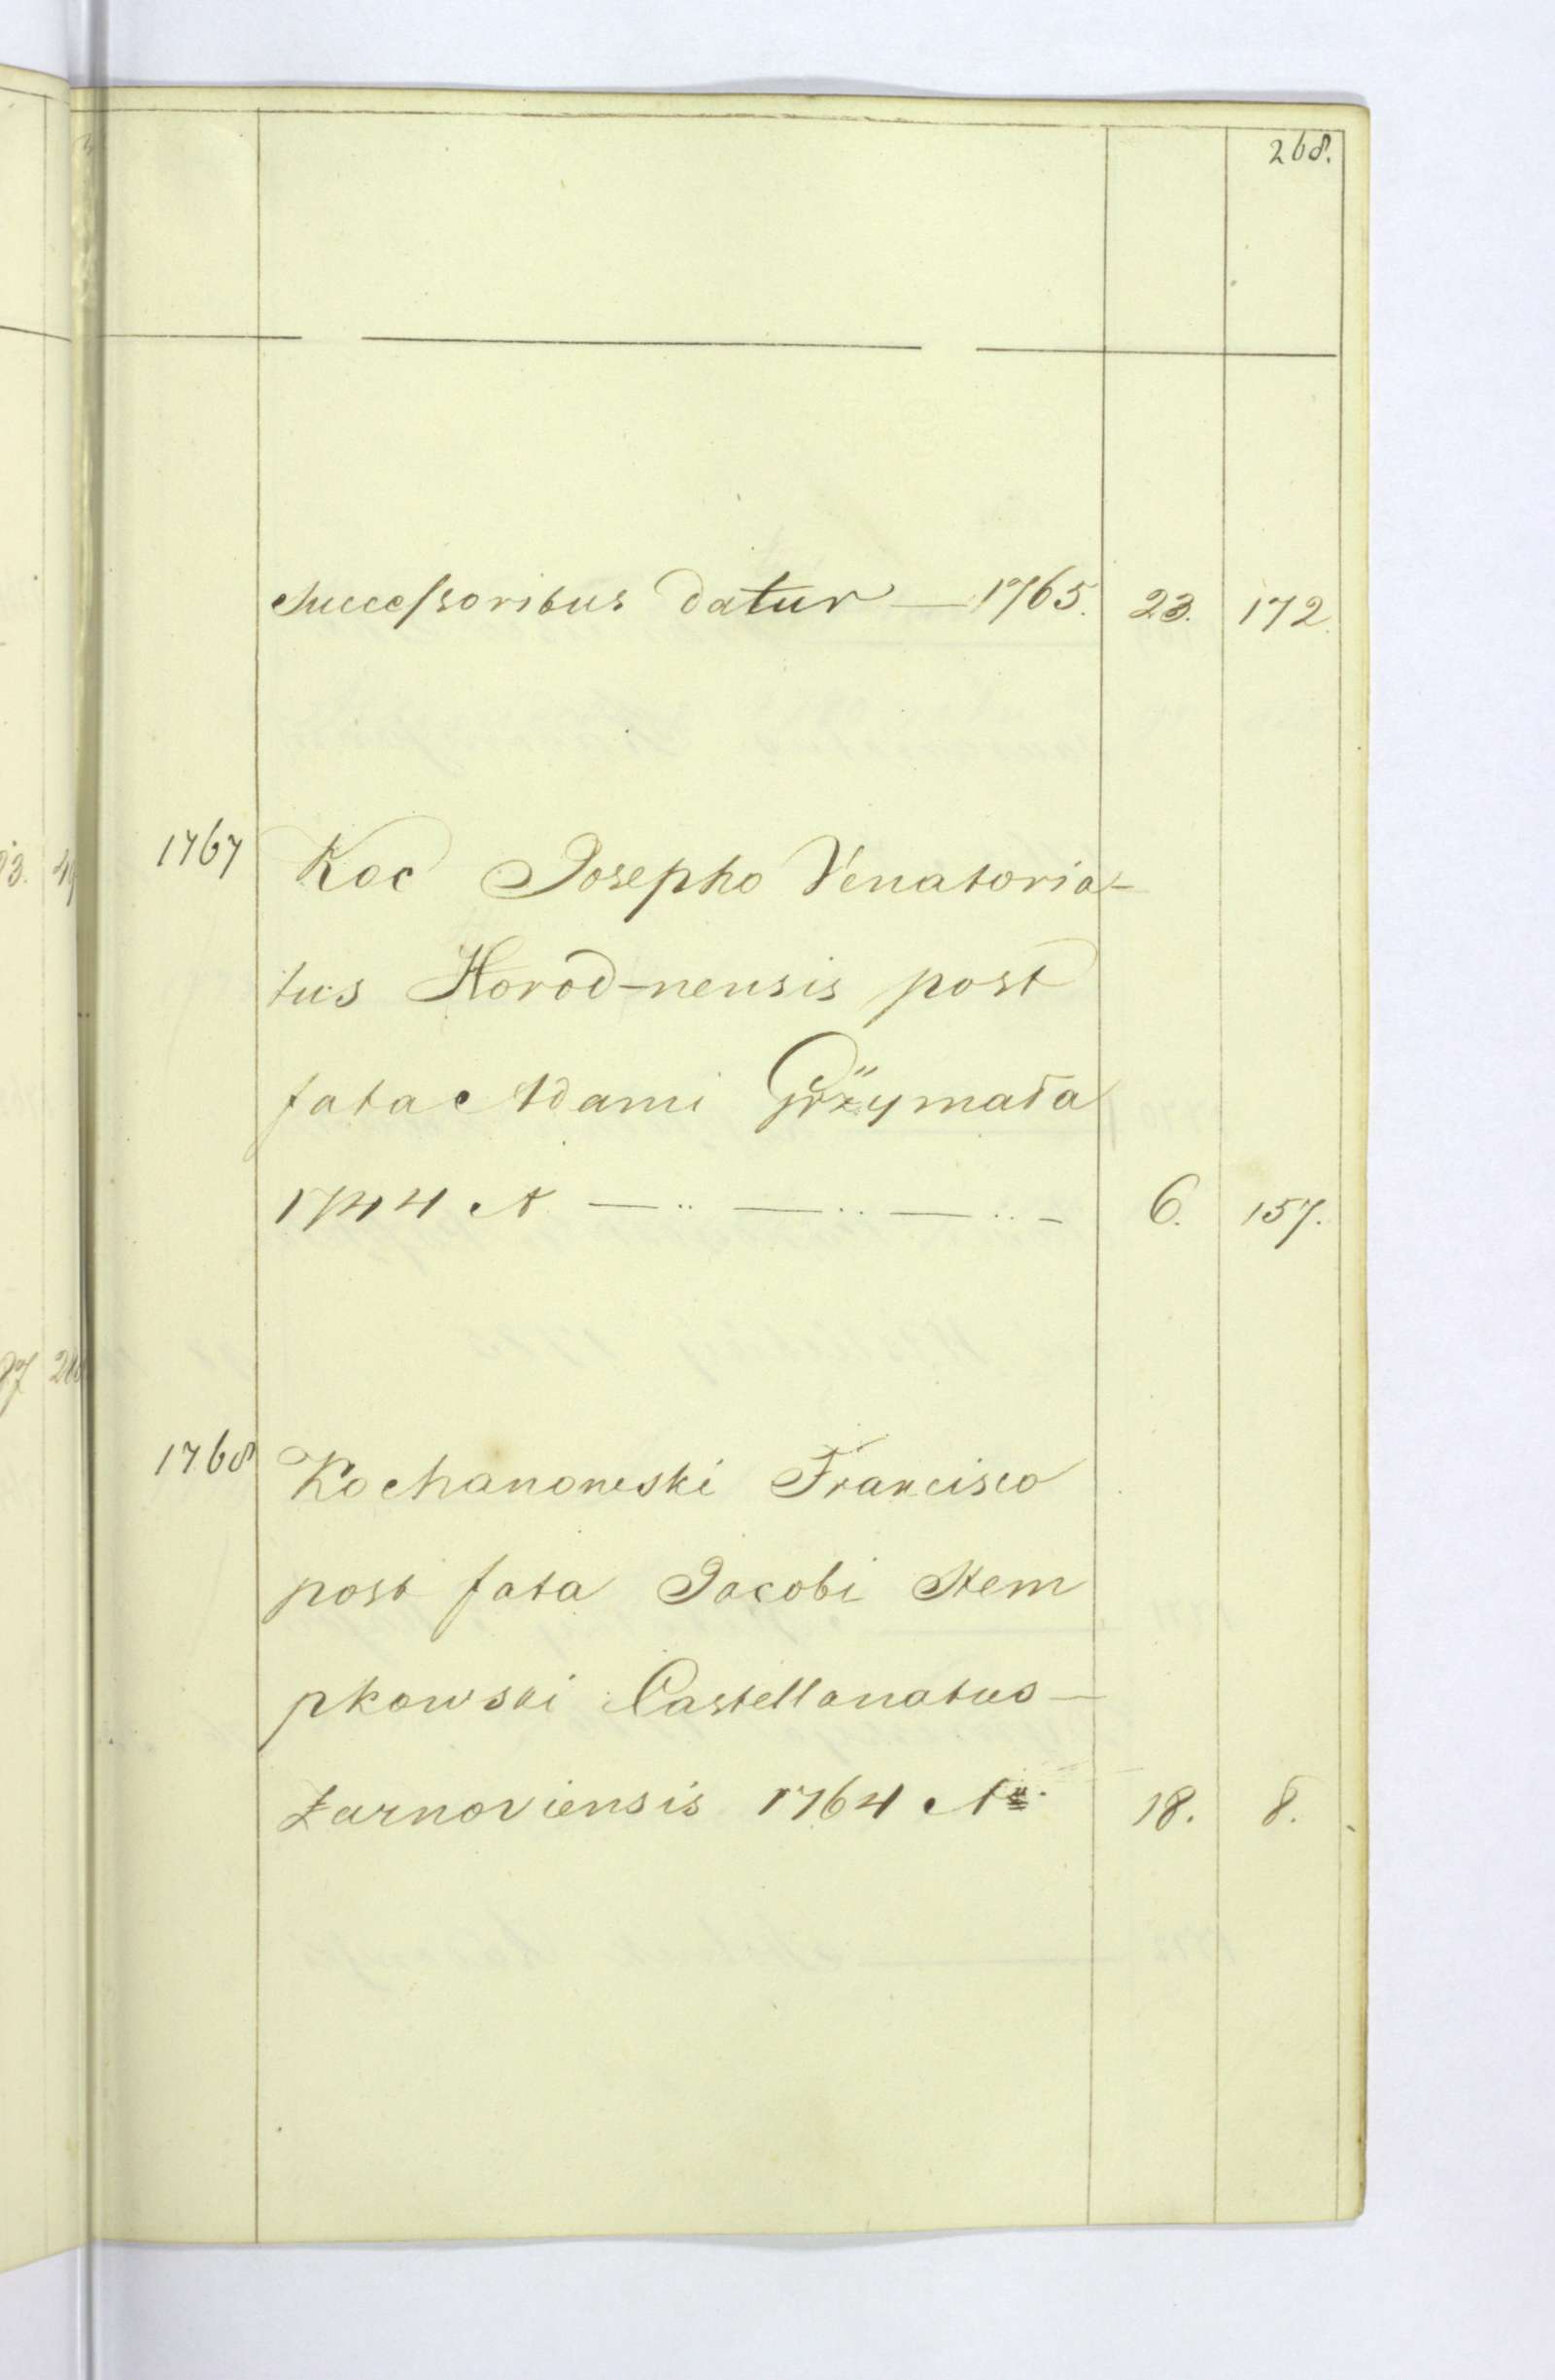 268.
Successoribus datur — 1765. 23. 172.
1767 Koc Josepho Venatoria-
tus Horod-nensis post
fata Adami Grzymała
1744 A — .. — .. — .. - 6. 157.
1768 Kochanowski Francisco
post fata Jacobi Stem
pkowski Castellanatus —
Żarnoviensis 1764 A 18. 8.